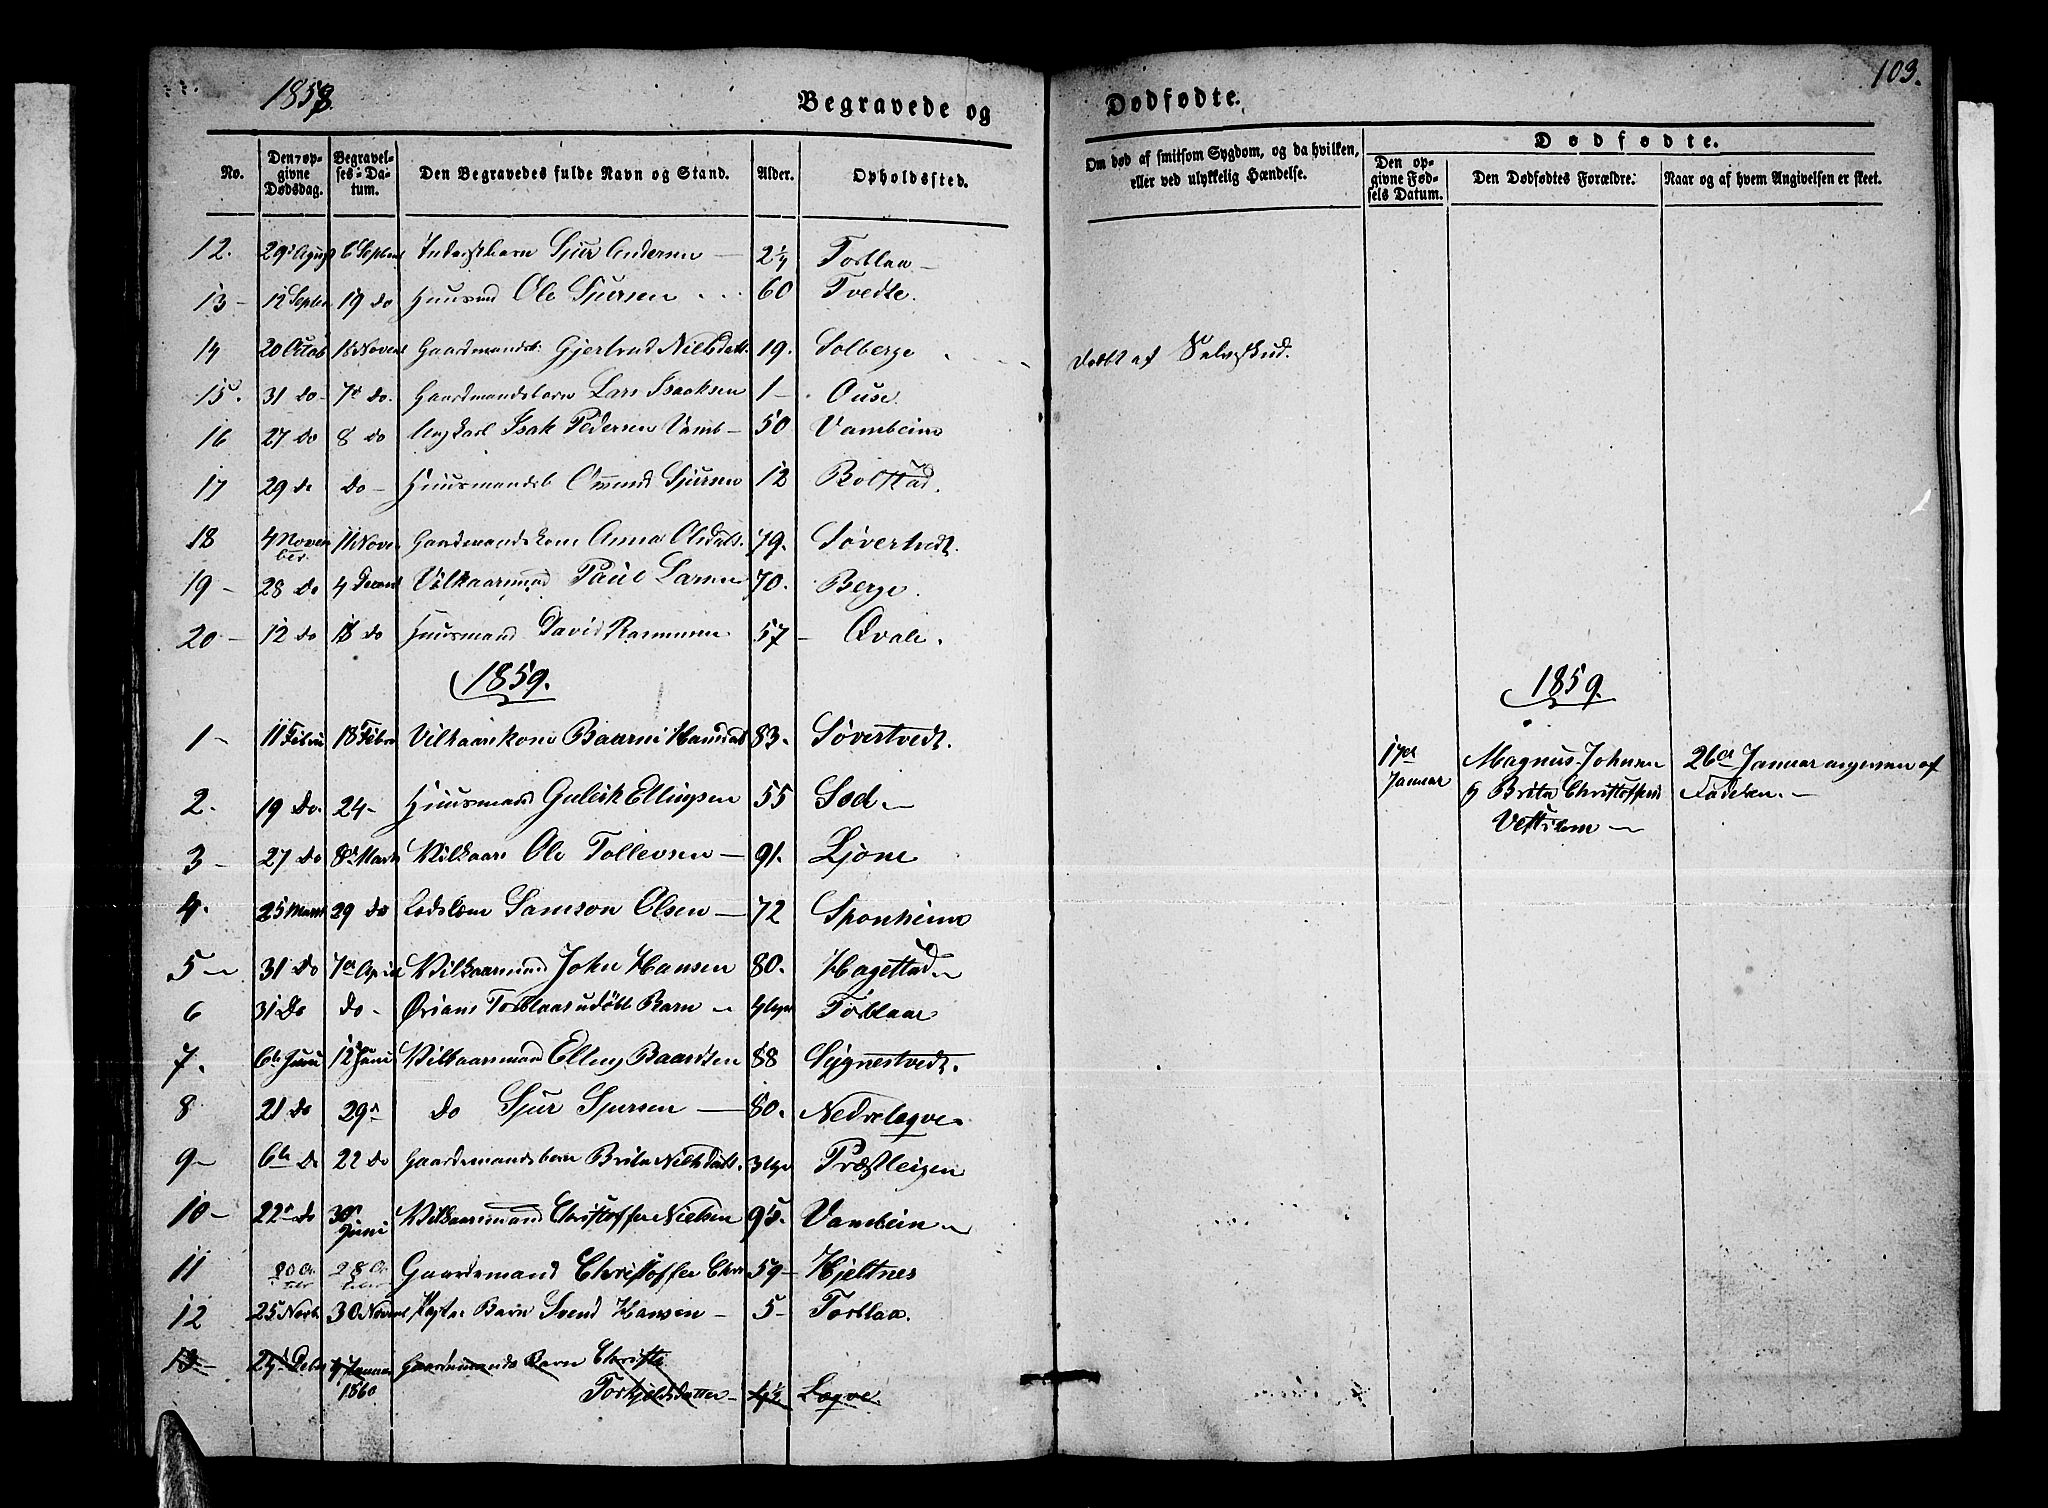 1858
Begravede og
Dødfødte.
103.
No.
Den opgivne Dødsdag.
Begravelses-Datum.
Den Begravedes fulde Navn og Stand.
Alder.
Opholdssted.
Om død af smitsom Sygdom, og da hvilken, eller ved ulykkelig Hændelse.
Dødfødte.
Den opgivne Fødsels Datum.
Den Dødfødtes Forældre.
Naar og af hvem Angivelsen er skeet.
12. 29 August 6 Septemb Sjur Andersen — 2¼ Torblaa —
13 — 12 Septem 19 Do Huusmd Ole Sjursen 60 Tvedte.
14 20 Octob 18 Novemb Gaardmandsb. Gjertrud Nielsdatt. 19. Solberge
Dødt af Selvskud.
15. 31 Do — 7de Do. Gaardmandsbarn Lars Isaaksen 1 — Ouse.
16 27 Do 8 Do Ungkarl Isak Pedersen Vamb — 50 Vambeim
17 29 Do Do — Huusmandsb Omund Sjursen 12 Bolstad.
18 4 Novem ber. 11 Novem Gaardmandskone Anna Olsdatt. 79. Søvertvedt.
19 — 28 Do 4 Decemb Vilkaarsmand Paul Larsen 70. Berge.
20 — 12 Do 18 Do Huusmand David Rasmussen 57 — Qvale.
1859.
1859.
1 — 11 Febru 18 Febru Vilkaarskone Baarni Hansdatt 83. Søvertvedt.
17de Januar
Magnus Johnsen
26de Januar angiven af
2. 19 Do. 24 — Huusmand Gulleik Ellingsen 55 Sod. —
g Brita Christoffersd
Faderen. —
Vestrem —
3 — 27 Do 8de Marts Vilkaars Ole Tollevsen — 91. Ljone
4. 25 Marts 29 Do Samson Olsen — 72 Sponheim
5 — 31 Do 7de April Vilkaarsmand John Hansen 80. Hagestad —
6 31 Do Do — Ørians Torblaas udøbt Barn — 4 Uger Torblaae
7. 6te Juni 12 Juni Vilkaarsmand Elling Baardsen 88 Sygnestvedt.
8 21 Do 29 do Sjur Sjursen — 80. Nedreleqve.
9 — 6te Do 22 Do Gaardemandsbarn Brita Nielsdatt. 3 Uger Præstleigen
10 — 22 Do 30 Juni Vilkaarsmand Christoffer Nielsen 95. Vambein —
11 28 Gaardemand Christoffer Chr 59 — Hjeltnes
12 25 Novb. 30 Novemb Barn Svend Hansen — 5 — Torblaa.
13 — 24 Decbr 4 Januar Gaardmands Barn Christi
1860 Torkjeldsdatter — Leqve.